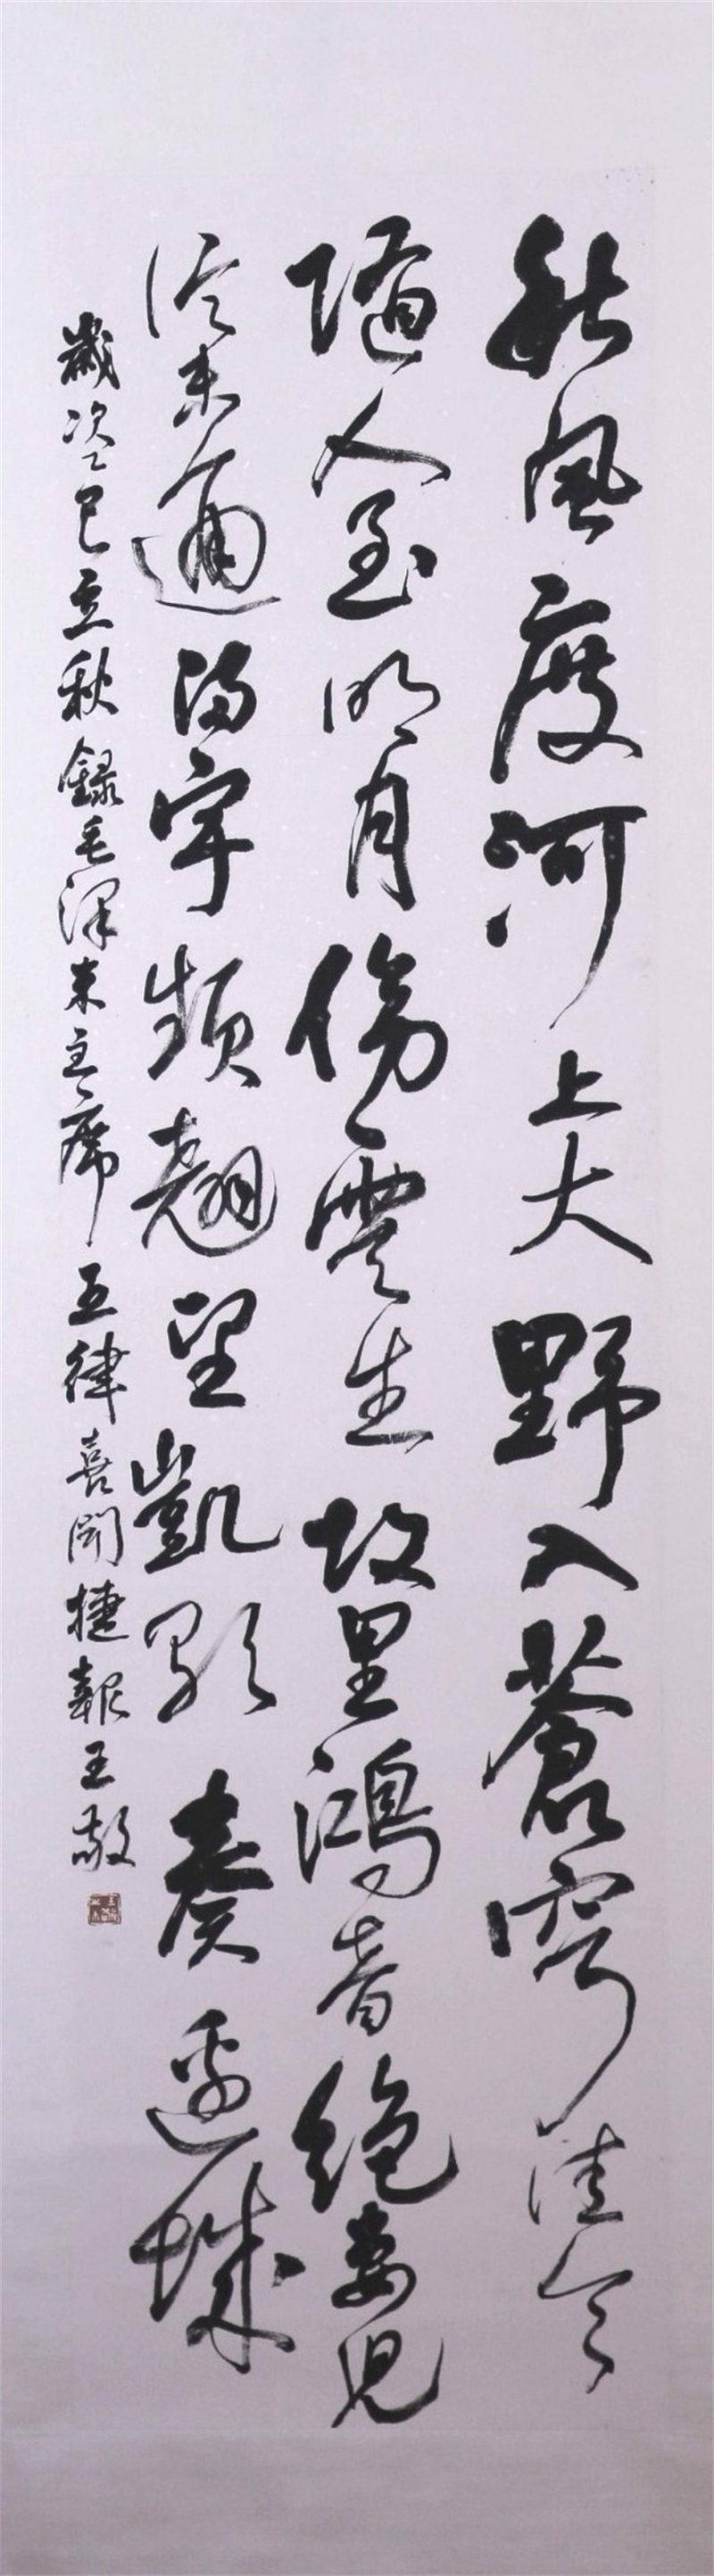 秋風度河上大野入蒼穹佳令
隨人至明月傍雲生故里鴻音絕妻兒
信未通滿宇頻翹望凱歌奏邊城
歲次乙巳立秋錄毛澤東主席五律喜聞捷報王敬